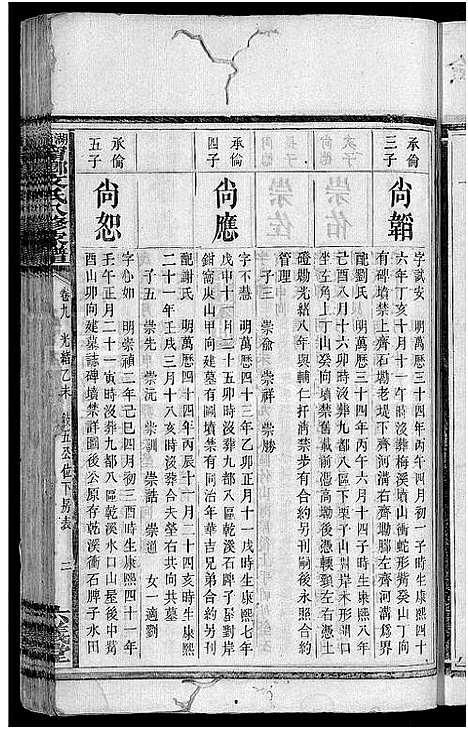 承倫
三子
尚韜
字試女 明萬曆三十四年丙午四月初一子時生康熙四十
六年丁亥十月十一午時沒葬梅溪墳山衝蛇形嘴癸山丁向
有碑墳禁上齊石磡老堤下齊河溝右齊磡脚左齊河溝爲界
配劉氏 明萬曆三十四年丙午六月十四子時生康熙八年
己酉八月十六卯時沒葬九都八區下栗子山對岸木形洞口
左邊角上丁山癸向禁舊載前憑高磡後憑轅頸左右憑土
磡光緒八年與輔仁扞清禁界合約另刊嗣後永照合約
管理
子三 崇儉 崇祥 崇勝
承倫
四子
尚應
字不慧 明萬曆四十三年乙卯正月十一戌時生康熙七年
戊申十月二十五卯時沒葬九都八區乾溪石牌子屋對岸
鉗窩庚山甲向建墓有圖墳禁有同治年華吉兄弟合約另刊
配謝氏 明萬曆四十六年戊午十月二十四亥時生康熙
二十一年壬戌三月十八亥時沒葬合夫塋右共向共墓
子五 崇先 崇沅 崇訓 崇誥 崇通 女一適劉
承倫
五子
尚恕
字心如 明崇禎二年己巳四月初三酉時生康熙四十一年
壬午正月二十一寅時沒葬九都八區乾溪水口山屋後中嘴
酉山卯向建墓誌碑墳禁詳圖後公原存乾溪衝石牌子水田
文氏八修族譜
卷九 光緒乙未 派下房表 二